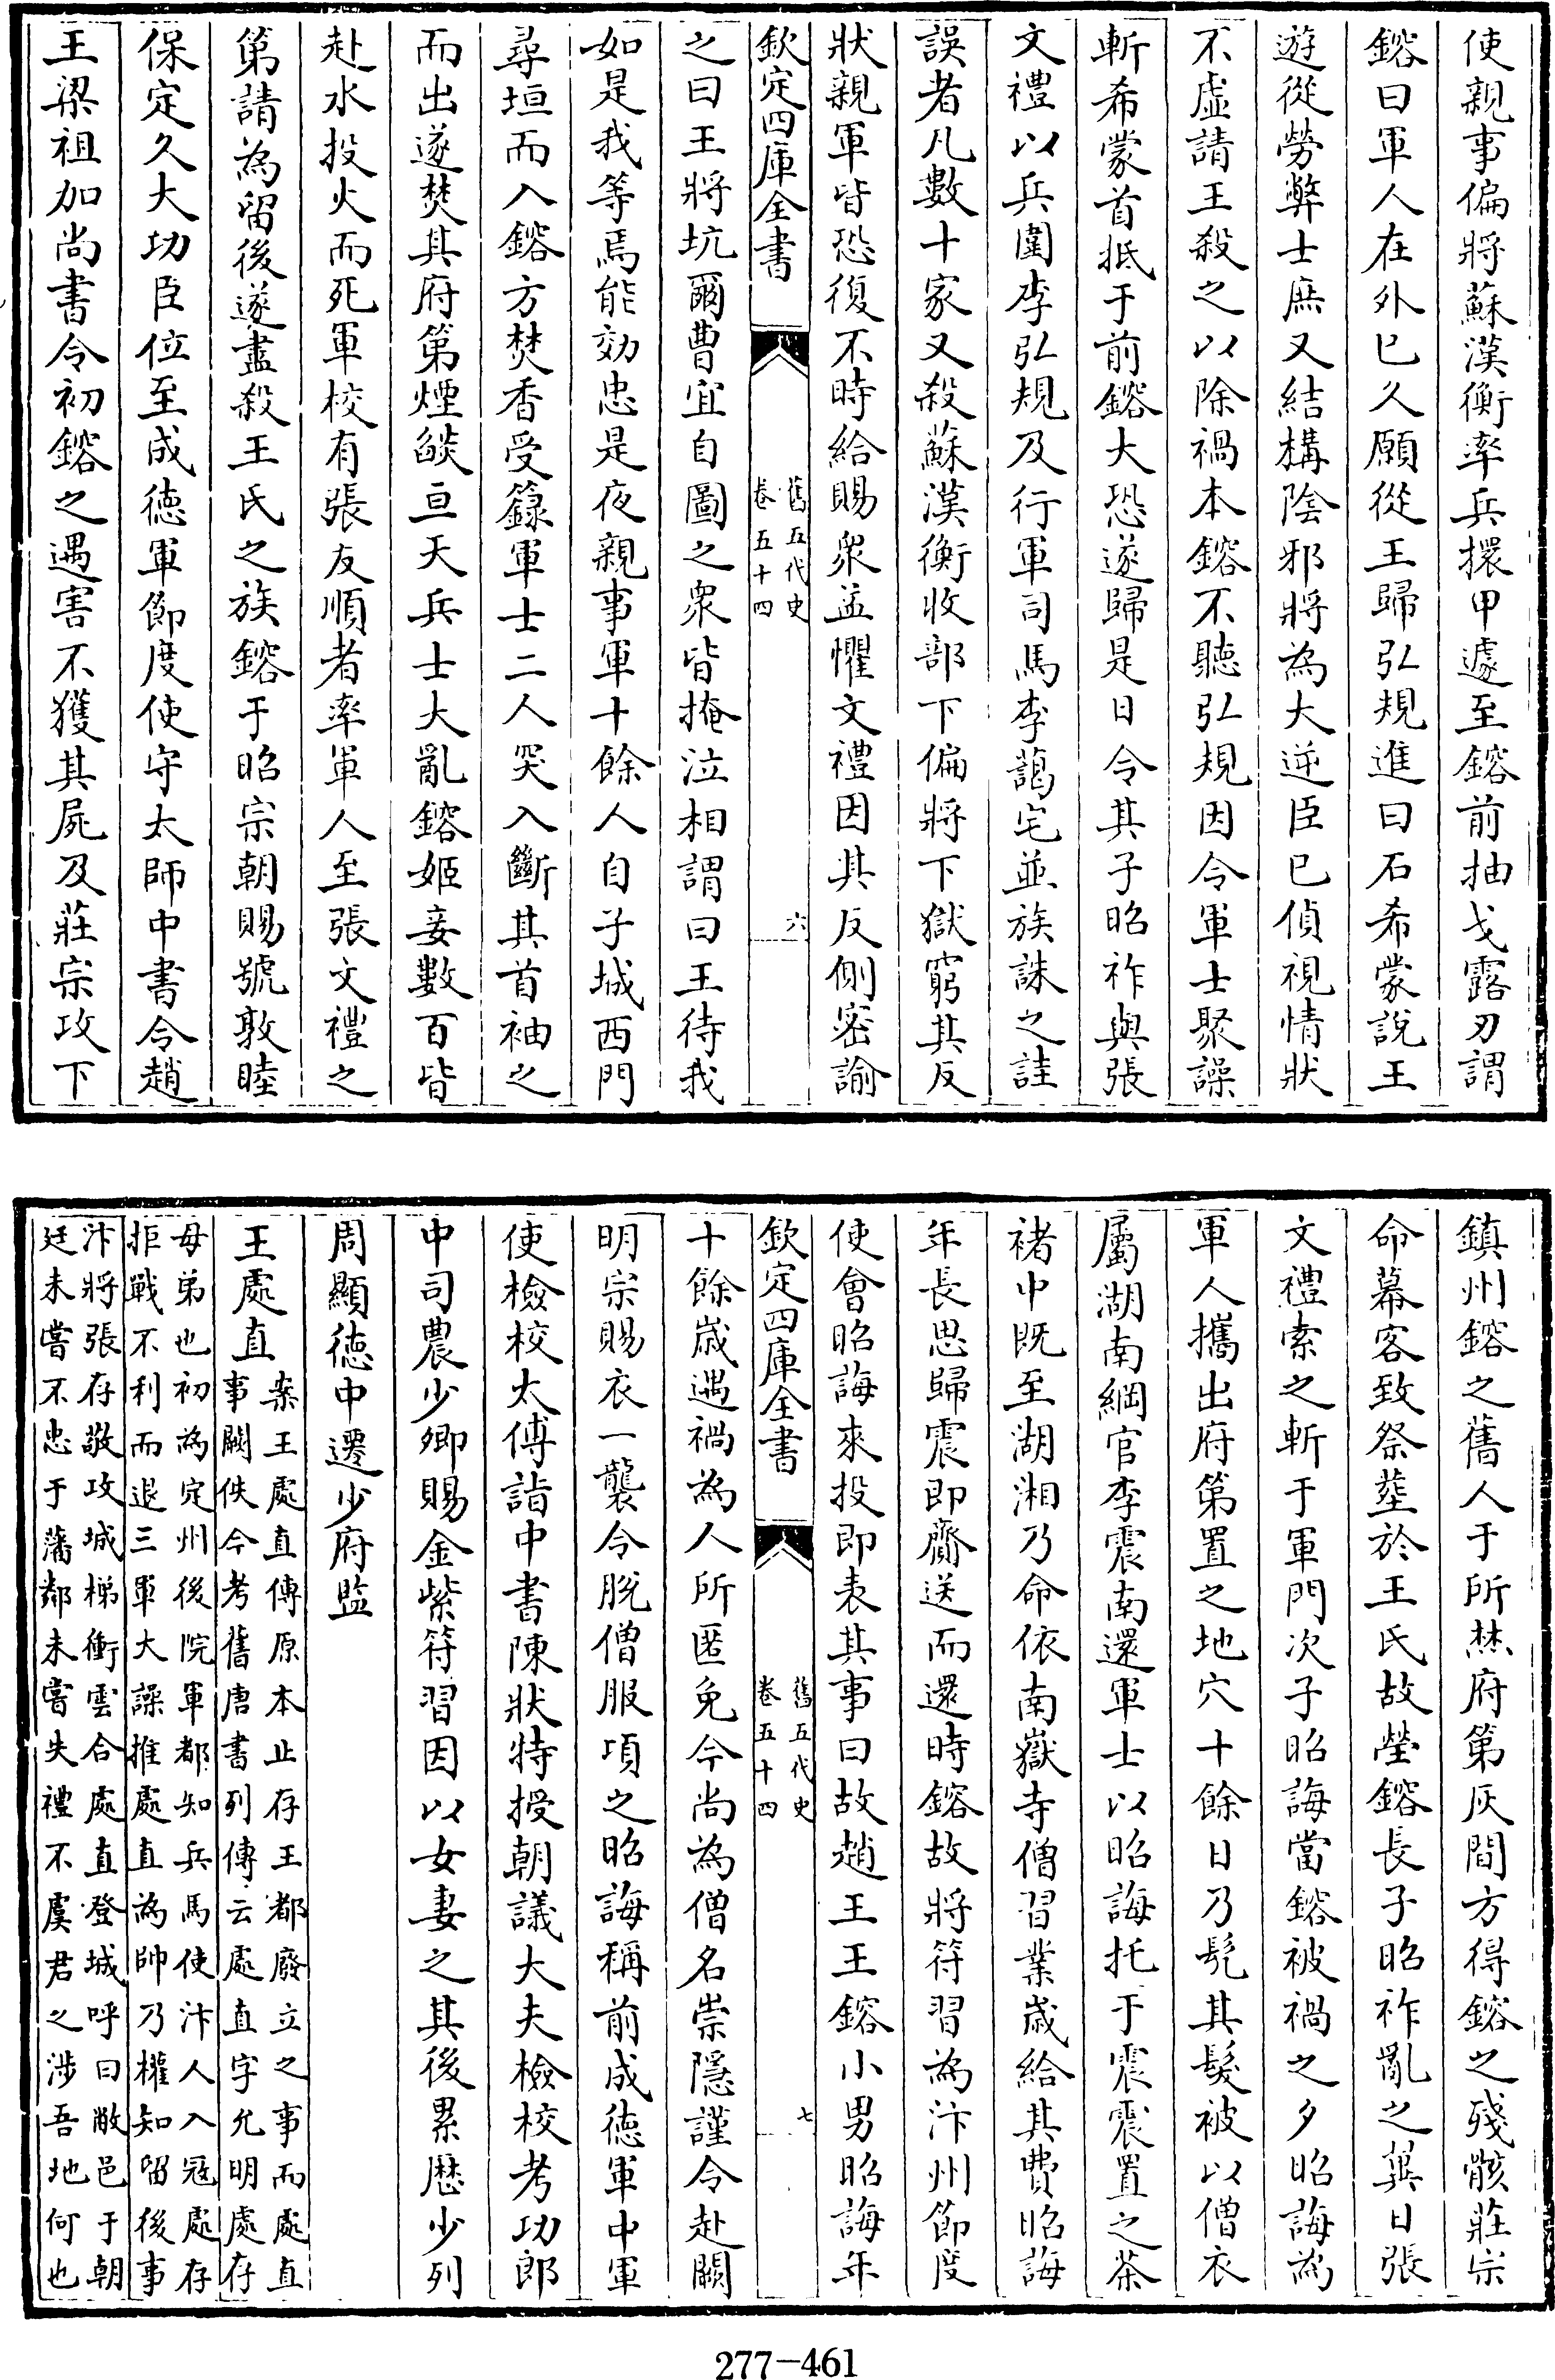 使親事偏將蘇漢衡率兵擐甲遽至鎔前抽戈露刃謂
鎔曰軍人在外已久願從王歸弘規進曰石希蒙說王
遊從勞弊士庶又結構陰邪將為大逆臣已偵視情狀
不虛請王殺之以除禍本鎔不聽弘規因令軍士聚譟
斬希蒙首抵于前鎔大恐遂歸是日令其子昭祚與張
文禮以兵圍李弘規及行軍司馬李藹宅並族誅之詿
誤者凡數十家又殺蘇漢衡收部下偏將下獄窮其反
狀親軍皆恐復不時給賜衆益懼文禮因其反側密諭
欽定四庫全書
舊五代史
卷五十四
六
之曰王將坑爾曹宜自圖之衆皆掩泣相謂曰王待我
如是我等焉能効忠是夜親事軍十餘人自子城西門
尋垣而入鎔方焚香受籙軍士二人突入斷其首袖之
而出遂焚其府第煙燄亘天兵士大亂鎔姬妾數百皆
赴水投火而死軍校有張友順者率軍人至張文禮之
第請為留後遂盡殺王氏之族鎔于昭宗朝賜號敦睦
保定久大功臣位至成德軍節度使守太師中書令趙
王梁祖加尚書令初鎔之遇害不獲其屍及莊宗攻下
鎮州鎔之舊人于所焚府第灰間方得鎔之殘骸莊宗
命幕客致祭塟於王氏故塋鎔長子昭祚亂之翼日張
文禮索之斬于軍門次子昭誨當鎔被禍之夕昭誨為
軍人攜出府第置之地穴十餘日乃髡其髮被以僧衣
屬湖南綱官李震南還軍士以昭誨托于震震置之茶
褚中既至湖湘乃命依南嶽寺僧習業歲給其費昭誨
年長思歸震即齎送而還時鎔故將符習為汴州節度
使會昭誨來投即表其事曰故趙王王鎔小男昭誨年
欽定四庫全書
舊五代史
卷五十四
七
十餘歲遇禍為人所匿免今尚為僧名崇隱謹令赴闕
明宗賜衣一襲令脫僧服頃之昭誨稱前成德軍中軍
使檢校太傅詣中書陳狀特授朝議大夫檢校考功郎
中司農少卿賜金紫符習因以女妻之其後累歷少列
周顯德中遷少府監
王處直案王處直傳原本止存王都廢立之事而處直
事闕佚今考舊唐書列傳云處直字允明處存
母弟也初為定州後院軍都知兵馬使汴人入冦處存
拒戰不利而退三軍大譟推處直為帥乃權知留後事
汴將張存敬攻城梯衝雲合處直登城呼曰敝邑于朝
廷未嘗不忠于藩鄰未嘗失禮不虞君之涉吾地何也
277-461